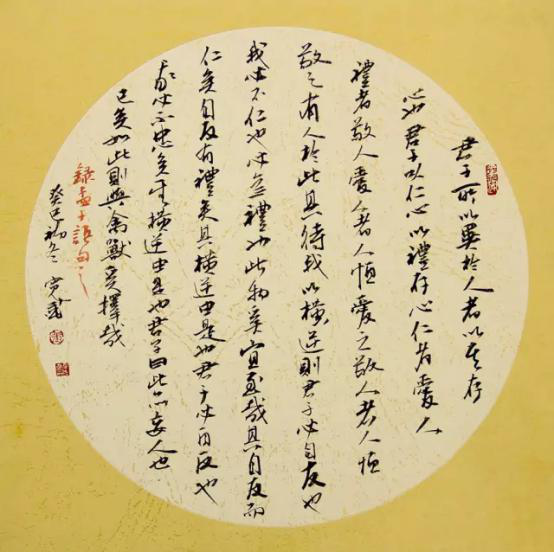 君子所以異於人者以其存
心也君子以仁心以禮存心仁者愛人
禮者敬人愛人者人恒愛之敬人者人恒
敬之有人於此其待我以橫逆則君子必自反也
我必不仁也必無禮也此物奚宜至哉其自反而
仁矣自反有禮矣其橫逆由是也君子必自反也
我必不忠矣其橫逆由是也君子曰此亦妄人也
已矣如此則與禽獸奚擇哉
錄孟子語句之一
癸巳初冬